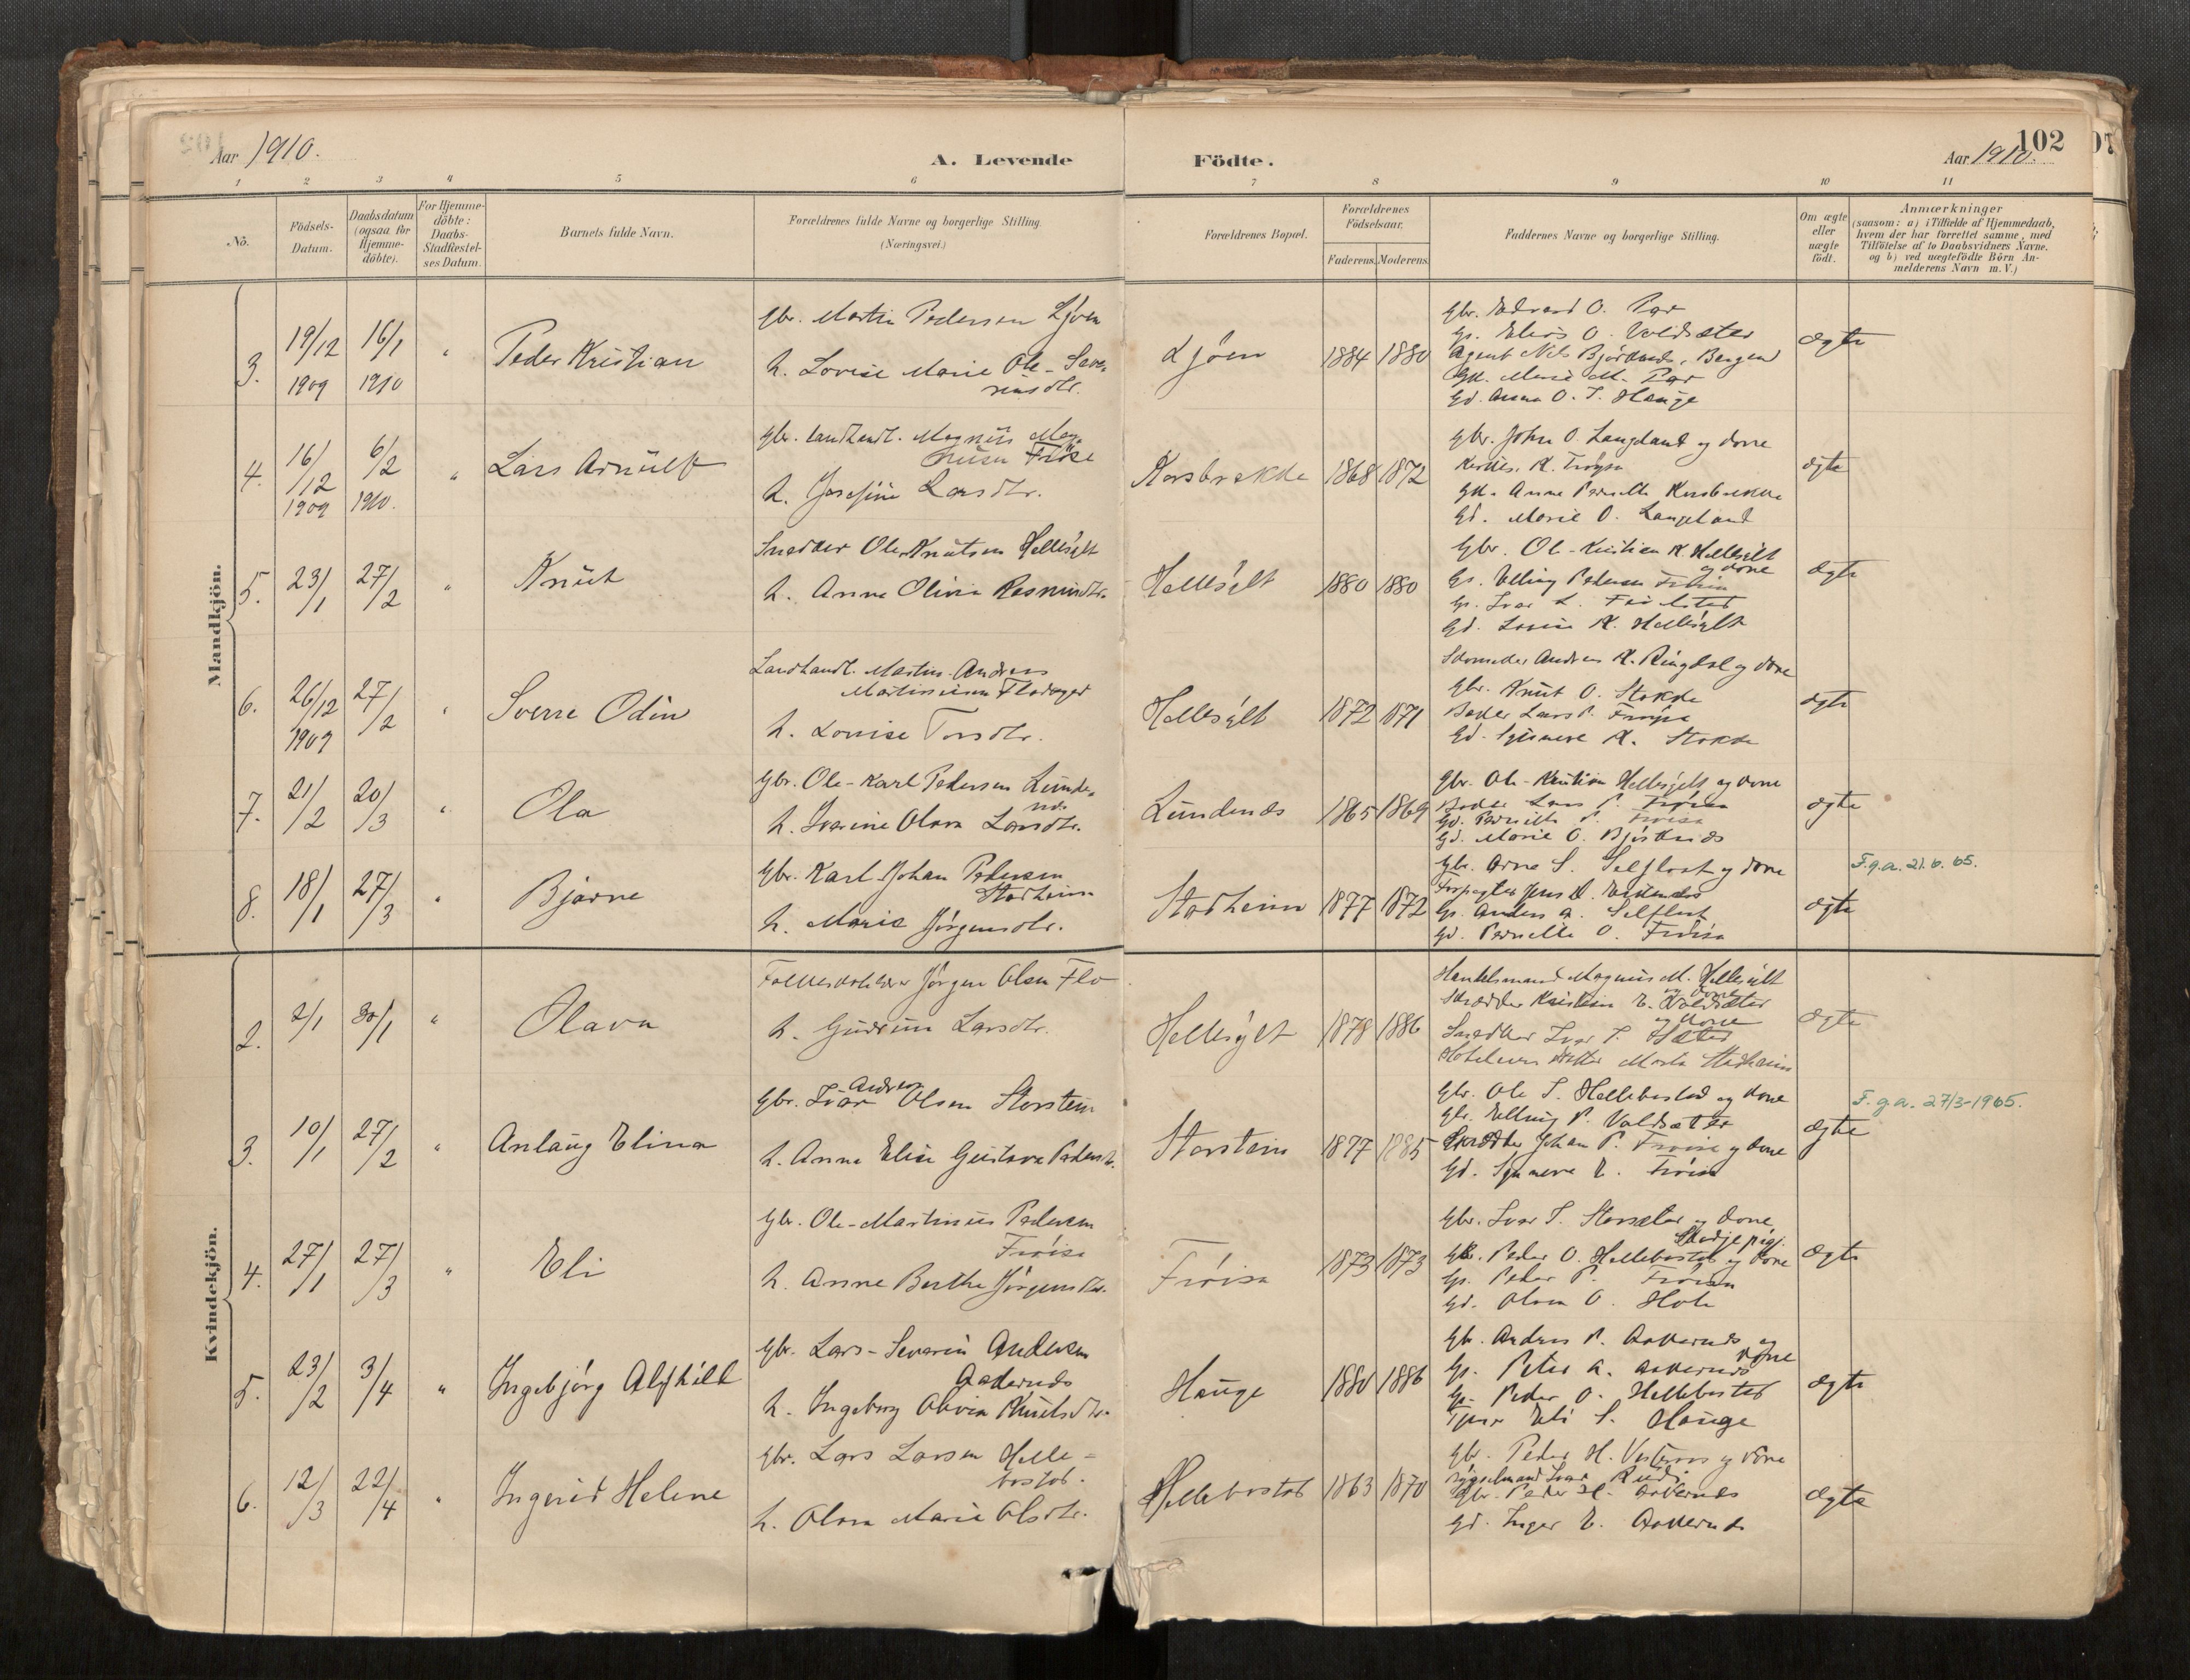 Aar 1910.
A. Levende Födte.
102
Aar 1910.
1 2 3 4 5 6 7 8 9 10 11
Nö.
Födsels-Datum.
Daabsdatum (ogsaa for Hjemme-döbte).
For Hjemme-döbte: Daabs-Stadfæstel-ses Datum.
Barnets fulde Navn.
Forældrenes fulde Navne og borgerlige Stilling. (Næringsvei.)
Forældrenes Bopæl.
Forældrenes Födselsaar.
Faderens. Moderens.
Faddernes Navne og borgerlige Stilling.
Om ægte eller uægte födt.
Anmærkninger
(saasom: a) i Tilfælde af Hjemmedaab, hvem der har forrettet samme, med Tilföielse af to Daabsvidners Navne. og b) ved uægtefödte Börn An-melderens Navn m.V.)
Mandkjön.
3. 19/12 1909 16/1 1910 " Peder Kristian
Gbr. Martin Pedersen Ljöen
h. Lovise Marie Ole-Seve-
rinsdtr.
Ljöen 1884 1880
Gbr. Edvard O.
Gs. Elias O. Voldsæter
Agent Nils Björdnes, Bergen
Gk. Marie M.
Gd. Anna O. T. Hauge
ægte
4. 16/12 1909 6/2 1910. " Lars Arnülf
Gbr. Landhandl. Magnüs Mag-
nüsen Fröise
h. Josefine Larsdtr.
Korsbrekke 1868 1872
Gbr. John O. Langeland og kone
K.
Gk. Anne Pernille Korsbrekke
Gd. Marie O. Langeland
ægte
5. 23/1 27/2 " Knüt
Snedker Ole Knütsen Hellesylt
h. Anne Olivia Rasmusdtr.
Hellesylt 1880 1880
Gbr. Ole-Kristian K. Hellesylt
og kone
Gs. Elling Pedersen
Gs. Ivar L.
Gd. Lovise K. Hellesylt
ægte
6. 26/12 1909 27/2 " Sverre Odin
Landhandl. Martin-Andreas
Martinusen Flodager
h. Louise Torsdtr.
Hellesylt 1872 1871
Skomager Andreas K. Ringdal og kone
Gbr. Knüt O. Stokke
Bager Lars P. Fröysa
Gd. Synnøve K. Stokke
ægte
7. 21/2 20/3 " Ola
Gbr. Ole-Karl Pedersen Lünde-
nes
h. Iverine Olava Larsdtr.
Lündenes 1865 1869
Gbr. Ole-Kristian Hellesylt og kone
Bager Lars P. Fröisa
Gd. Pernille P. Fröisa
Gd. Marie O. Björdnes
ægte
8. 18/1 27/3 " Bjarne
Gbr. Karl-Johan Pedersen
Stadheim
h. Marie Jörgensdtr.
Stadheim 1877 1872
Gbr. Arne S. Selflot og kone
Forpagter Jens
Gs. Anders A. Selflot
Gd. Pernille O. Fröisa
ægte
F.g.a. 21.6.65.
Kvindekjön.
2. 2/1 30/1 " Olava
Jörgen Olsen Flo
h. Güdrün Larsdtr.
Hellesylt 1878 1886
Handelsmand Magnüs M. Hellesylt
og kone
Skrædder Kristian E. Voldsæter
og kone
Snedker Ivar P. Sæter
Marta Stadheim
ægte
3. 10/1 27/2 " Anlaüg Elina
Gbr. Ivar Andreas Olsen Storstein
h. Anna Elise Güstava Pedersdtr.
Storstein 1877 1885
Gbr. Ole I. Hellebostad og kone
Gbr. Elling P. Voldsæter
Snedker Johan P. Fröisa og kone
Gd. Synnøve E. Fröisa
ægte
F.g.a. 27/3-1965.
4. 27/1 27/3 " Eli
Gbr. Ole-Martinüs Pedersen
Fröisa
h. Anne Berthe Jörgensdtr.
Fröisa 1873 1873
Gbr. Ivar T. Storsæter og kone
Gbr. Peder O. Hellebostad og kone
Gs. Peder P. Fröisa
Gd. Olava O. Hole
ægte
5. 23/2 3/4 " Ingebjörg Alfhild
Gbr. Lars-Severin Andersen
Aakernes
h. Ingeborg Olivia Knütsdtr.
Hauge 1880 1886
Gbr. Anders P. Aakernes og
kone
Gs. Peter A. Aakernes
Gs. Peder O. Hellebostad
Eli S. Hauge
ægte
6. 12/3 22/4 " Ingerid Helene
Gbr. Lars Larsen Helle-
bostad.
h. Olava Marie Olsdtr.
Hellebostad 1863 1870
Gbr. Peder H. Vesteraas og kone
Ivar
Gbr. Peder H. Aakernes
Gd. Inger E. Aakernes
ægte